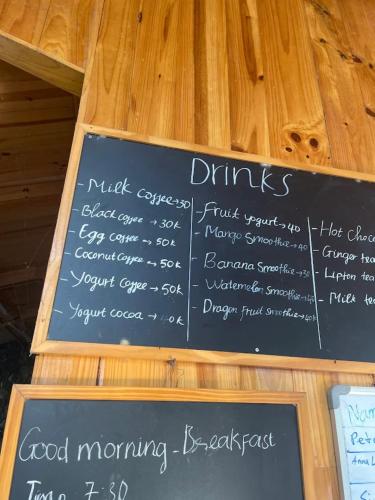 Drinks
- Milk coffee → 30
- Black coffee → 30k
- Egg coffee → 50k
- Coconut coffee → 50k
- Yogurt Coffee → 50k
- Yogurt cocoa → 40k
- Fruit yogurt → 40
- Mango Smoothie → 40
- Banana Smoothie → 30
- Watermelon Smoothie → 40
- Dragon fruit smoothie → 40k
- Hot Choco
Ginger tea
- Lipton tea
- Milk tea
Good morning - Breakfast
7:30
Nam
Petr
Anna L